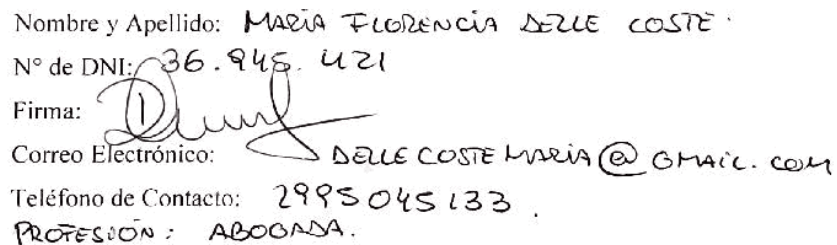 Nombre y Apellido: MARÍA FLORENCIA DELLE COSTE.
N° de DNI: 36.945.421
Firma:
Correo Electrónico: DELLECOSTEMARIA@GMAIL.COM
Teléfono de Contacto: 2995045133.
PROFESIÓN: ABOGADA.